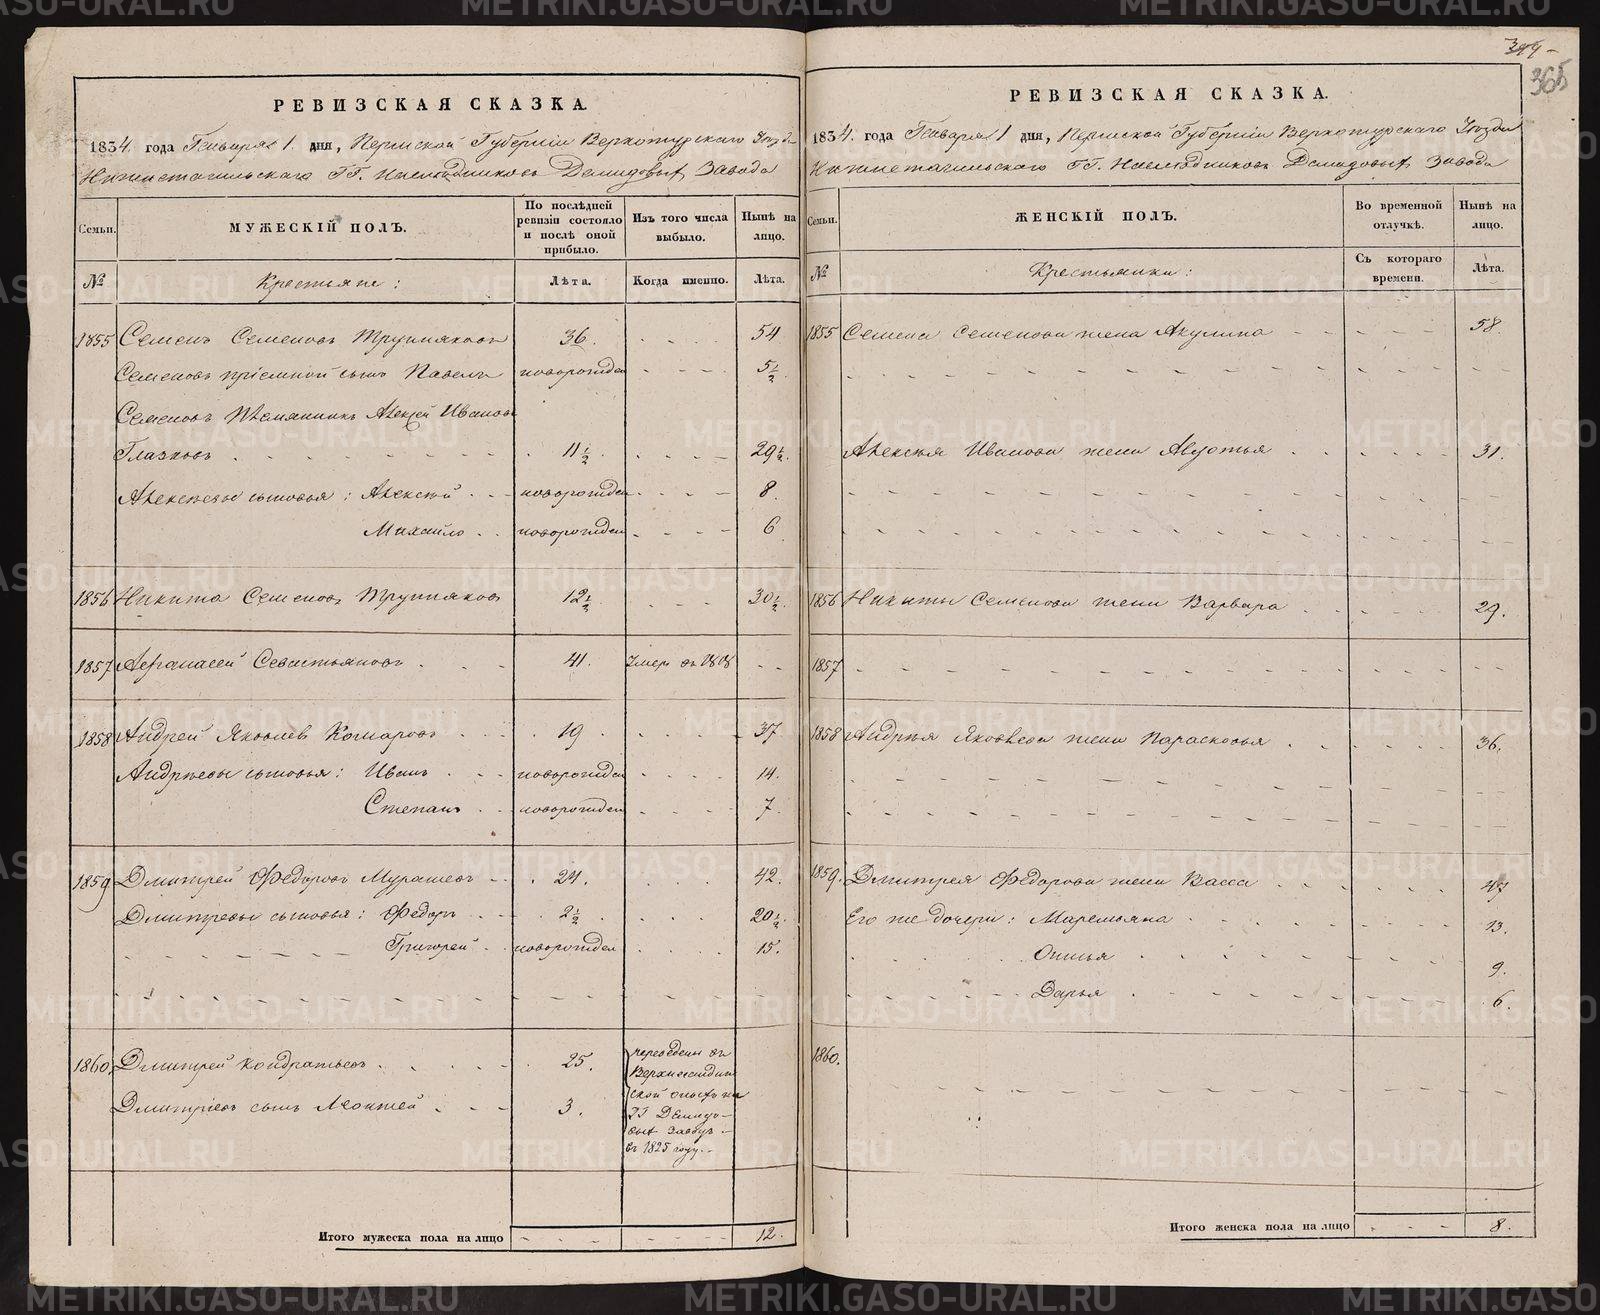 365
РЕВИЗСКАЯ СКАЗКА.
1834. года Генваря 1. дня, Пермской Губерніи Верхотурскаго Уезда
Нижнетагильскаго ГГ. Наследниковъ Демидовыхъ Завода
Семьи.
МУЖЕСКІЙ ПОЛЪ.
По послѣдней ревизіи состояло и послѣ оной прибыло.
Изъ того числа выбыло.
Нынѣ на лицо.
№
Крестьяне:
Лѣта.
Когда именно.
Лѣта.
1855 Семенъ Семеновъ Трупняковъ 36. 54
Семеновъ пріемной сынъ Павелъ новорожден 5½
Семеновъ Племянникъ Алексей Ивановъ
Глазковъ 11½ 29½
Алексѣевы сыновья: Алексѣй новорожден 8.
Михайло новорожден 6
1856 Никита Семеновъ Трупняковъ 12½ 30½
1857 Афанасей Севастьяновъ 41. Умеръ въ 1818
1858 Андрей Яковлев Комаровъ 19 37
Андрѣевы сыновья: Иванъ новорожден 14.
Степанъ новорожден 7.
1859 Дмитрей Федоровъ Мурашевъ 24. 42.
Дмитревы сыновья: Федоръ 2½ 20½
Григорей новорожден 15.
1860. Дмитрей Кондратьевъ 25.
Дмитріевъ сынъ Леонтей 3.
переведены въ
ГГ Демидо-
выхъ Заводъ
въ 1825 году.
Итого мужеска пола на лицо 12.
РЕВИЗСКАЯ СКАЗКА.
1834. года Генваря 1 дня, Пермской Губерніи Верхотурскаго Уезда
Нижнетагильскаго ГГ. Наследниковъ Демидовыхъ Завода
Семьи.
ЖЕНСКІЙ ПОЛЪ.
Во временной отлучкѣ.
Нынѣ на лицо.
№
Крестьянки:
Съ котораго времени.
Лѣта.
1855 Семена Семенова жена Акулина 58.
Алексѣя Иванова жена Авдотья 31.
1856 Никиты Семенова жена Варвара 29.
1857
1858 Андрѣя Яковлева жена Парасковья 36.
1859. Дмитрея Федорова жена Васса 47
Его же дочери: Маремьяна 13.
9.
Дарья 6.
1860.
Итого женска пола на лицо 8.
METRIKI.GASO-URAL.RU